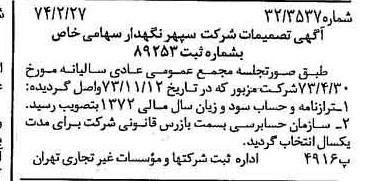 شماره ۳۲/۳۵۳۷ ۷۴/۲/۲۷
آگهی تصمیمات شرکت سپهر نگهدار سهامی خاص
بشماره ثبت ۸۹۲۵۳
طبق صورتجلسه مجمع عمومی عادی سالیانه مورخ
۷۳/۴/۳۰شرکت مزبور که در تاریخ ۷۳/۱۱/۱۲واصل گردیده:
۱ـترازنامه و حساب سود و زیان سال مالی ۱۳۷۲بتصویب رسید.
۲ـ سازمان حسابرسی بسمت بازرس قانونی شرکت برای مدت
یکسال انتخاب گردید.
پ۴۹۱۶ اداره ثبت شرکتها و مؤسسات غیر تجاری تهران